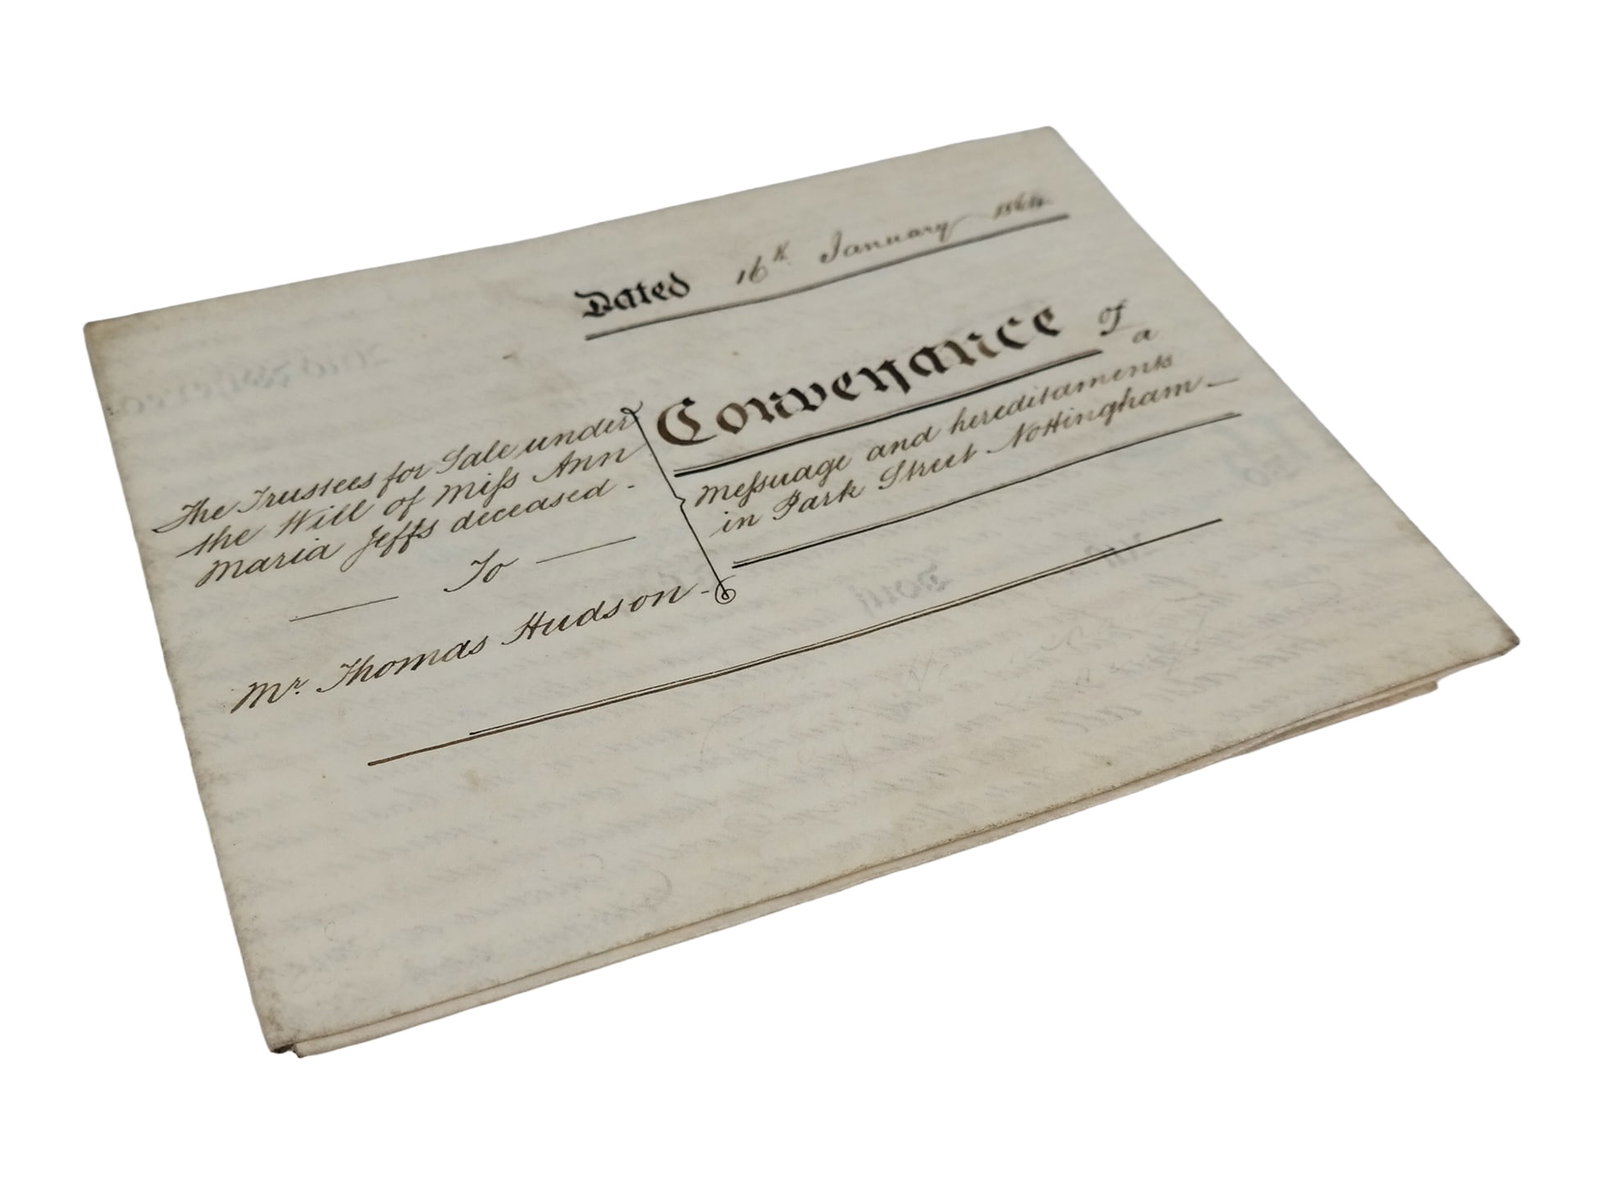 Dated 16th January 1864
The Trustees for Sale under
the Will of Miſs Ann
Maria Jeffs deceased.
To
Mr. Thomas Hudson
Conveyance of
a
meſsuage and hereditaments
in Park Street Nottingham